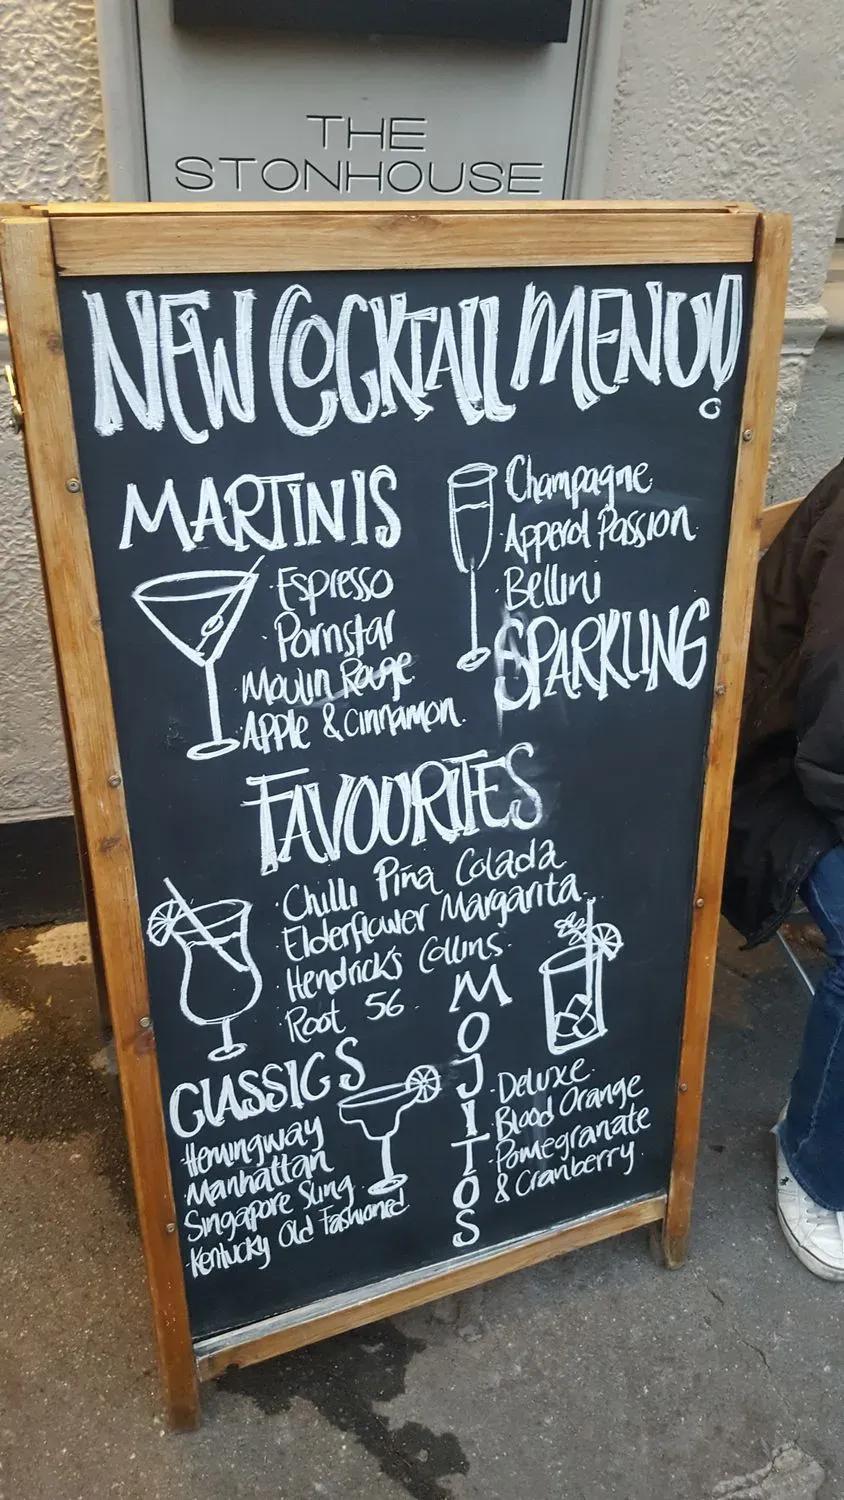 THE
STONHOUSE
NEW COCKTAIL MENU!
MARTINIS
Espresso
Pornstar
Moulin Rouge
Apple & Cinnamon
Champagne
Apperol Passion
Bellini
SPARKLING
FAVOURITES
Chilli Piña Colada
Elderflower Margarita
Hendrick's Collins
Root 56
CLASSICS
Hemingway
Manhattan
Singapore Sling
Kentucky Old Fashioned
MOJITOS
Deluxe
Blood Orange
Pomegranate
& Cranberry